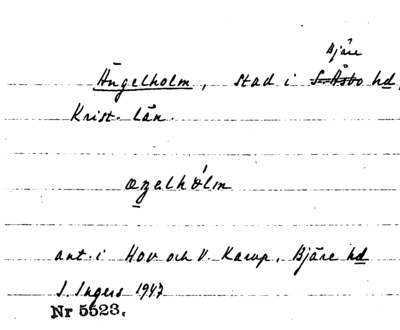 Bjäre
Ängelholm, stad i S. Åsbo hd,
Krist. län.
æŋelhòlm
ant. i Hov och V. Karup, Bjäre hd
I. Ingers 1947
Nr 5523.